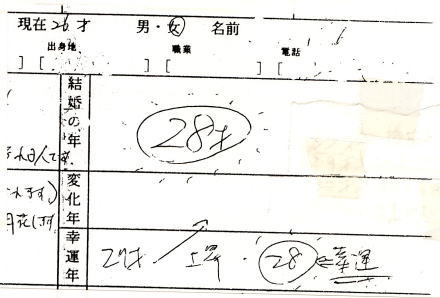 現在26才 男・女 名前
出身地 職業 電話
] [ ] [ ] [
結婚の年 28才
れる人です
変化年
れます)
開花します
幸運年 27才 上昇・28 幸運